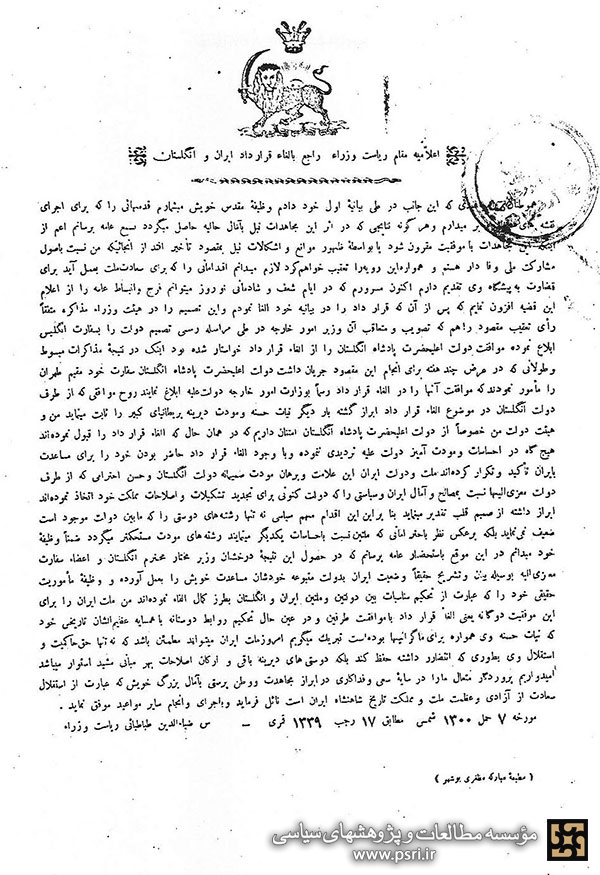 اعلامیه مقام ریاست وزراء راجع بالغاء قرارداد ایران و انگلستان
که این جانب در طی بیانیهٔ اول خود دادم وظیفهٔ مقدس خویش میشمارم قدمهائی را که برای اجرای
میدارم وهر گونه نتایجی که از این مجاهدات نیل بآمال حالیه حاصل میگردد بسمع عامه برسانم اعم از
مجاهدات با موفقیت مقرون شود یا بواسطهٔ ظهور موانع و اشکالات نیل بمقصود تأخیر افتد از آنجائیکه من نسبت باصول
مشارکت ملی وفا دار هستم و همواره این رویه را تعقیب خواهم کرد لازم میدانم اقداماتی را که برای سعادت ملت بعمل آید برای
قضاوت به پیشگاه وی تقدیم دارم اکنون مسرورم که در ایام شعف و شادمانی نوروز میتوانم فرح وانبساط عامه را از اعلام
این قضیه افزون نمایم که پس از آن که قرار داد را در بیانیه خود الغا نمودم واین تصمیم را در هیئت وزراء مذاکره متفقاً
رأی تعقیب مقصود را هم که تصویب و متعاقب آن وزیر امور خارجه در طی مراسله رسمی تصمیم دولت را بسفارت انگلیس
ابلاغ نموده موافقت دولت اعلیحضرت پادشاه انگلستان را از الغاء قرار داد خواستار شده بود اینک در نتیجهٔ مذاکرات مبسوط
وطولانی که در عرض چند هفته برای انجام این مقصود جریان داشت دولت اعلیحضرت پادشاه انگلستان سفارت خود مقیم طهران
را مأمور نمودند که موافقت آنها را در الغاء قرار داد رسماً بوزارت امور خارجه دولت علیه ابلاغ نمایند روح موافقتی که از طرف
دولت انگلستان در موضوع الغاء قرار داد ابراز گشته بار دیگر نیات حسنه ومودت دیرینه بریطانیای کبیر را ثابت مینماید من و
هیئت دولت من خصوصاً از دولت اعلیحضرت پادشاه انگلستان امتنان داریم که در همان حال که الغاء قرار داد را قبول نموده اند
هیچگاه در احساسات ومودت آمیز دولت علیه تردیدی ننموده وبا وجود الغاء قرار داد حاضر بودن خود را برای مساعدت
بایران تأکید وتکرار کرده اند ملت ودولت ایران این علامت وبرهان مودت صمیمانه دولت انگلستان وحسن احترامی که از طرف
دولت معزی الیها نسبت بمصالح و آمال ایران وسیاستی را که دولت کنونی برای تجدید تشکیلات و اصلاحات مملکت خود اتخاذ نموده اند
ابراز داشته از صمیم قلب تقدیر مینماید بنا بر این این اقدام مهم سیاسی نه تنها رشته های دوستی را که مابین دولت موجود است
ضعیف نمی نماید بلکه برعکس نظر باحتراماتی که ملتین نسبت باحساسات یکدیگر مینمایند رشته های مودت مستحکمتر میگردد ضمناً وظیفهٔ
خود میدانم در این موقع باستحضار عامه برسانم که در حصول این نتیجهٔ درخشان وزیر مختار محترم انگلستان و اعضاء سفارت
معزی الیه بوسیله بیان وتشریح حقیقاً وضعیت ایران بدولت متبوعه خودشان مساعدت خویش را بعمل آورده و وظیفهٔ مأموریت
حقیقی خود را که عبارت از تحکیم مناسبات بین دولتین وملتین ایران وانگلستان بطرز کمال الفاء نموده اند من ملت ایران را برای
این موفقیت دوگانه یعنی الغاء قرار داد با موافقت طرفین و در عین حال تحکیم روابط دوستانه با همسایه عظیم الشان تاریخی خود
که نیات حسنه وی همواره برای ما گرانبها بوده است تبریک میگویم امروز ملت ایران میتواند مطمئن باشد که نه تنها حق حاکمیت و
استقلال وی بطوری که انتظار داشته حفظ کند بلکه دوستی های دیرینه باقی و ارکان اصلاحات بهر مبانی مشید استوار میباشد
امیدواریم پروردگار متعال مارا در سایهٔ سعی وفداکاری در ابراز مجاهدت ووطن پرستی بآمال بزرگ خویش که عبارت از استقلال
سعادت از آزادی وعظمت ملت و مملکت تاریخ شاهنشاه ایران است نائل فرماید وباجرای وانجام سایر مواعید موفق نماید .
مورخه ۷ حمل ۱۳۰۰ شمسی مطابق ۱۷ رجب ۱۳۳۹ قمری — س ضیاءالدین طباطبائی ریاست وزراء
( مطبعهٔ مبارکه مظفری بوشهر )
مؤسسه مطالعات و پژوهشهای سیاسی
www.psri.ir